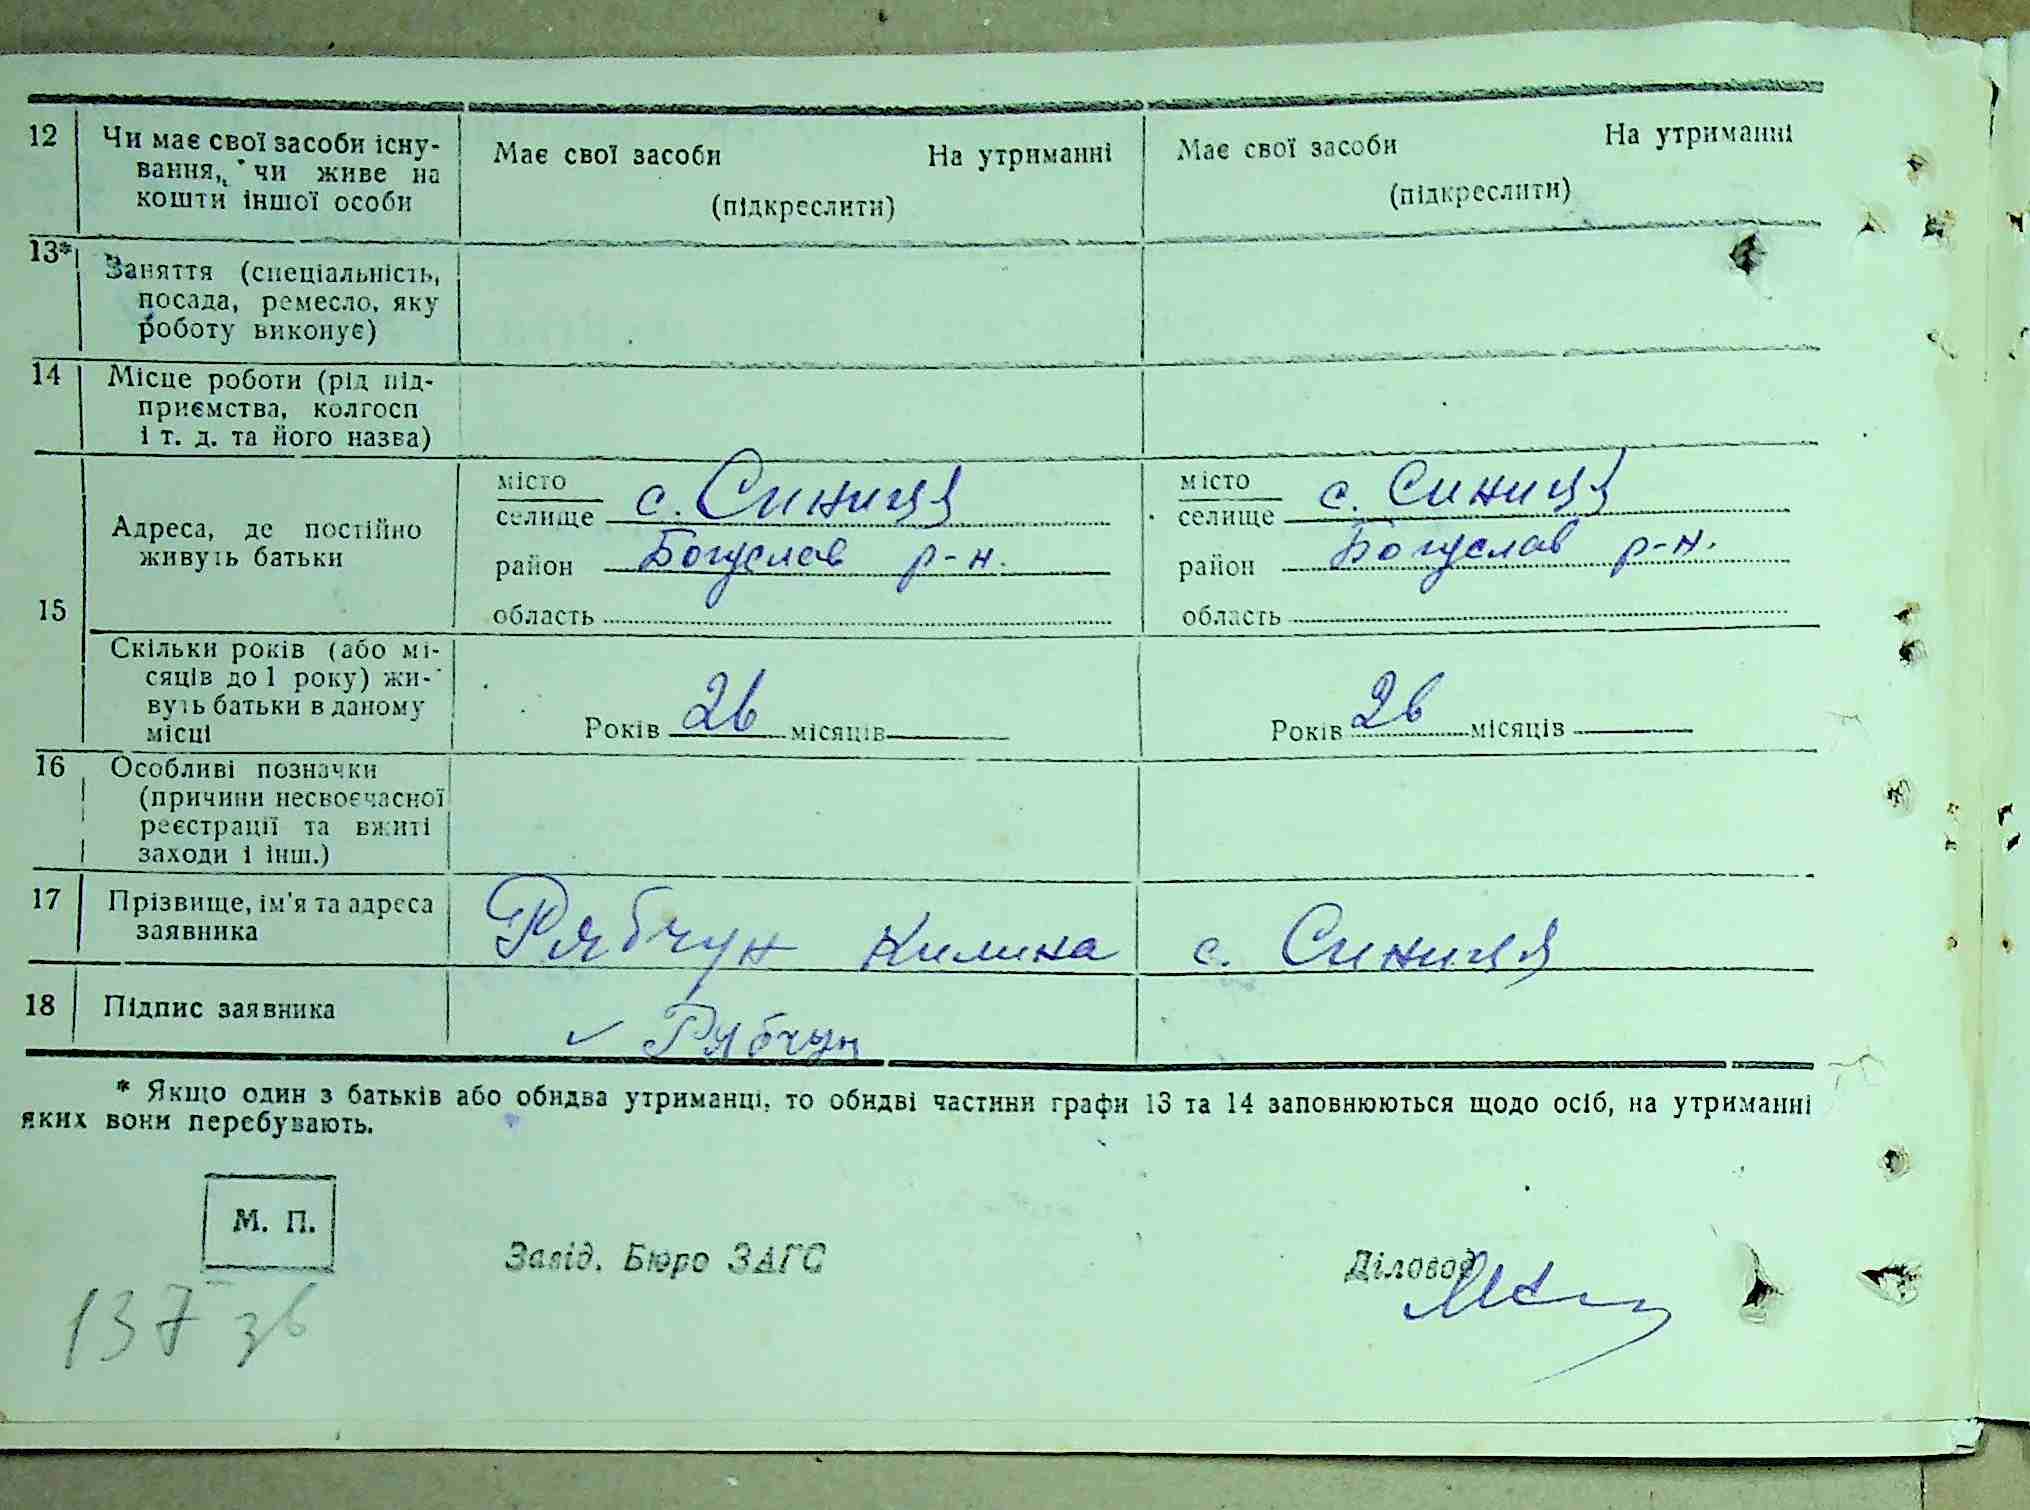 12 Чи має свої засоби існу-
вання, чи живе на
кошти іншої особи
Має свої засоби На утриманні
(підкреслити)
Має свої засоби На утриманні
(підкреслити)
13* Заняття (спеціальність,
посада, ремесло, яку
роботу виконує)
14 Місце роботи (рід під-
приємства, колгосп
і т. д. та його назва)
15
Адреса, де постійно
живуть батьки
місто
селище с. Синиця
район Богуслав р-н.
область
місто
селище с. Синиця
район Богуслав р-н.
область
Скільки років (або мі-
сяців до 1 року) жи-
вуть батьки в даному
місці
Років 26 місяців
Років 26 місяців
16 Особливі позначки
(причини несвоєчасної
реєстрації та вжиті
заходи і інш.)
17 Прізвище, ім'я та адреса
заявника
Рябчун Килина с. Синиця
18 Підпис заявника
Рябчун
* Якщо один з батьків або обидва утриманці, то обидві частини графи 13 та 14 заповнюються щодо осіб, на утриманні
яких вони перебувають.
М. П.
Завід. Бюро ЗАГС Діловод
137 зв